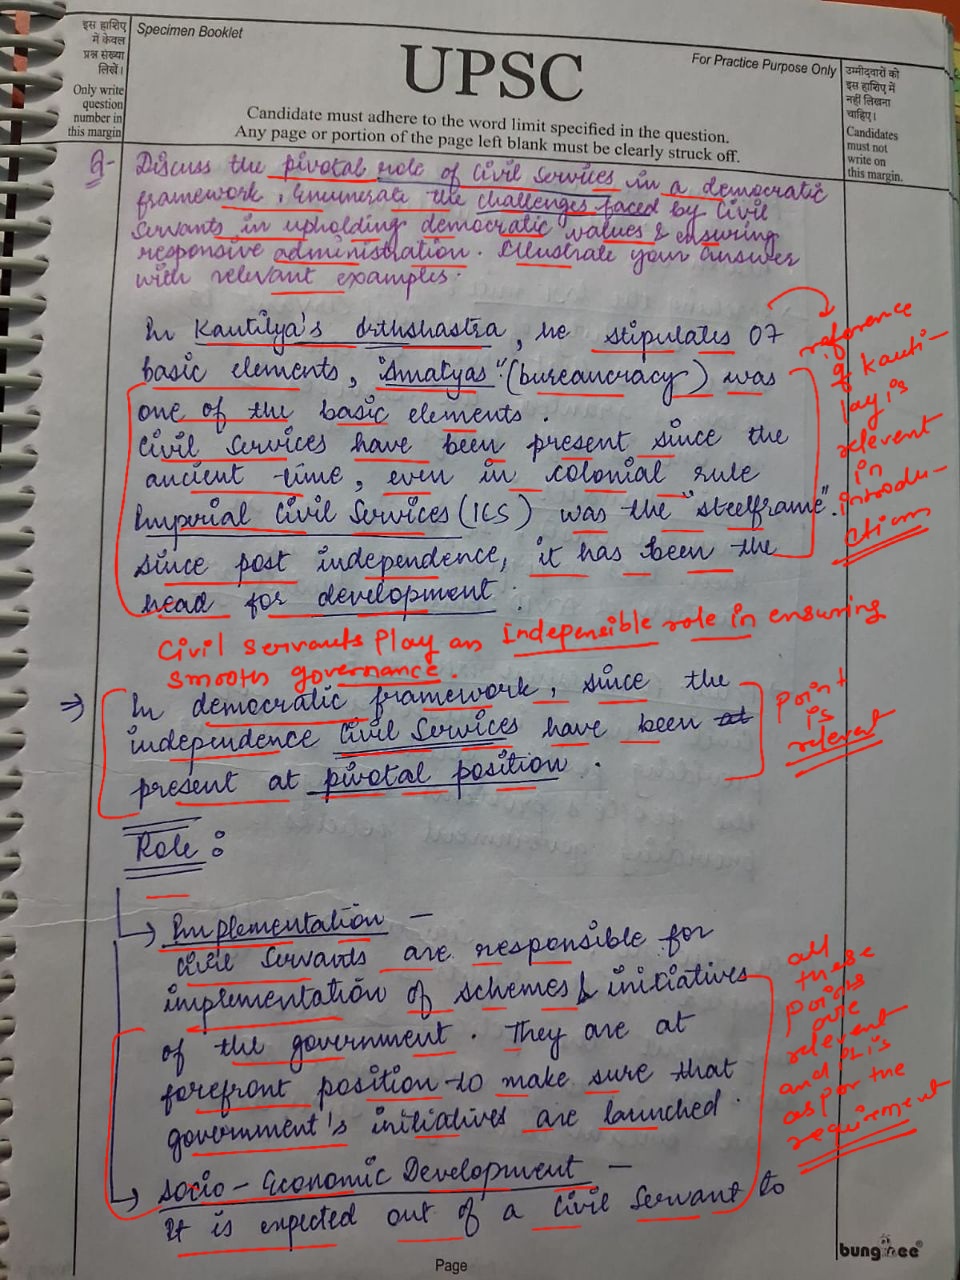 इस हाशिए
में केवल
प्रश्न संख्या
लिखें।
Only write
question
number in
this margin
Specimen Booklet
UPSC
For Practice Purpose Only
Candidate must adhere to the word limit specified in the question.
Any page or portion of the page left blank must be clearly struck off.
उम्मीदवारों को
इस हाशिए में
नहीं लिखना
चाहिए।
Candidates
must not
write on
this margin.
Q- Discuss the pivotal role of Civil Services in a democratic
framework. Enumerate the challenges faced by Civil
Servants in upholding democratic values & ensuring
responsive administration. Illustrate your answer
with relevant examples.
In Kautilya's Arthshastra, he stipulates 07
basic elements, "Amatyas" (bureaucracy) was
one of the basic elements.
Civil Services have been present since the
ancient time, even in colonial rule
Imperial Civil Services (ICS) was the "steelframe".
since post independence, it has been the
head for development.
reference
of kauti-
lay is
relevent
in
introdu-
ctions
Civil servants play an Indepensible role in ensuring
smooth governance.
⇒ In democratic framework, since the
independence Civil Services have been
present at pivotal position.
point
is
relevat
Role:
→ Implementation –
Civil Servants are responsible for
implementation of schemes & initiatives
of the government. They are at
forefront position to make sure that
government's initiatives are launched.
→ Socio-Economic Development –
It is expected out of a Civil Servant to
all
these
points
are
relevent
and
as per the
requirement
Page
bungee